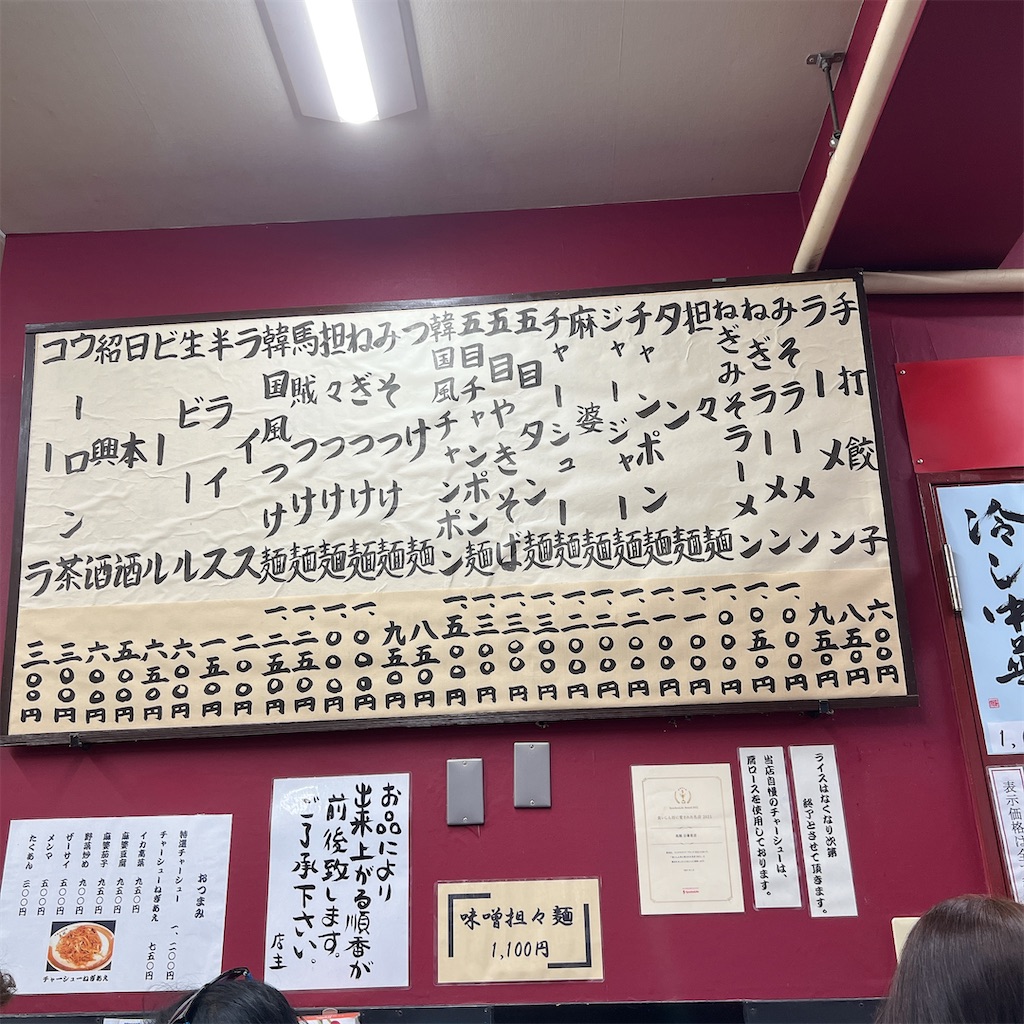 手打餃子 六〇〇円
ラーメン 八五〇円
みそラーメン 九五〇円
ねぎラーメン 一、〇〇〇円
ねぎみそラーメン 一、〇五〇円
担々麺 一、〇〇〇円
タン麺 一、一〇〇円
チャンポン麺 一、一〇〇円
ジャージャー麺 一、二〇〇円
麻婆麺 一、二〇〇円
チャーシュー麺 一、三〇〇円
五目タン麺 一、三〇〇円
五目やきそば 一、三〇〇円
五目チャンポン麺 一、三〇〇円
韓国風チャンポン 一、五〇〇円
つけ麺 八五〇円
みそつけ麺 九五〇円
ねぎつけ麺 一、〇〇〇円
担々つけ麺 一、〇〇〇円
馬賊つけ麺 一、二五〇円
韓国風つけ麺 一、二五〇円
ライス 二〇〇円
半ライス 一五〇円
生ビール 六〇〇円
ビール 六五〇円
日本酒 五〇〇円
紹興酒 六〇〇円
ウーロン茶 三〇〇円
コーラ 三〇〇円
冷し中華
表示価格は
ライスはなくなり次第
終了とさせて頂きます。
当店自慢のチャーシューは、
肩ロースを使用しております。
味噌担々麺
1,100円
お品により
出来上がる順番が
前後致します。
ご了承下さい。
店主
おつまみ
特選チャーシュー 一、二〇〇円
チャーシューねぎあえ 七五〇円
イカ高菜 九五〇円
麻婆豆腐 九五〇円
麻婆茄子 九五〇円
野菜炒め 九五〇円
ザーサイ 五〇〇円
メンマ 五〇〇円
たくあん 三〇〇円
チャーシューねぎあえ